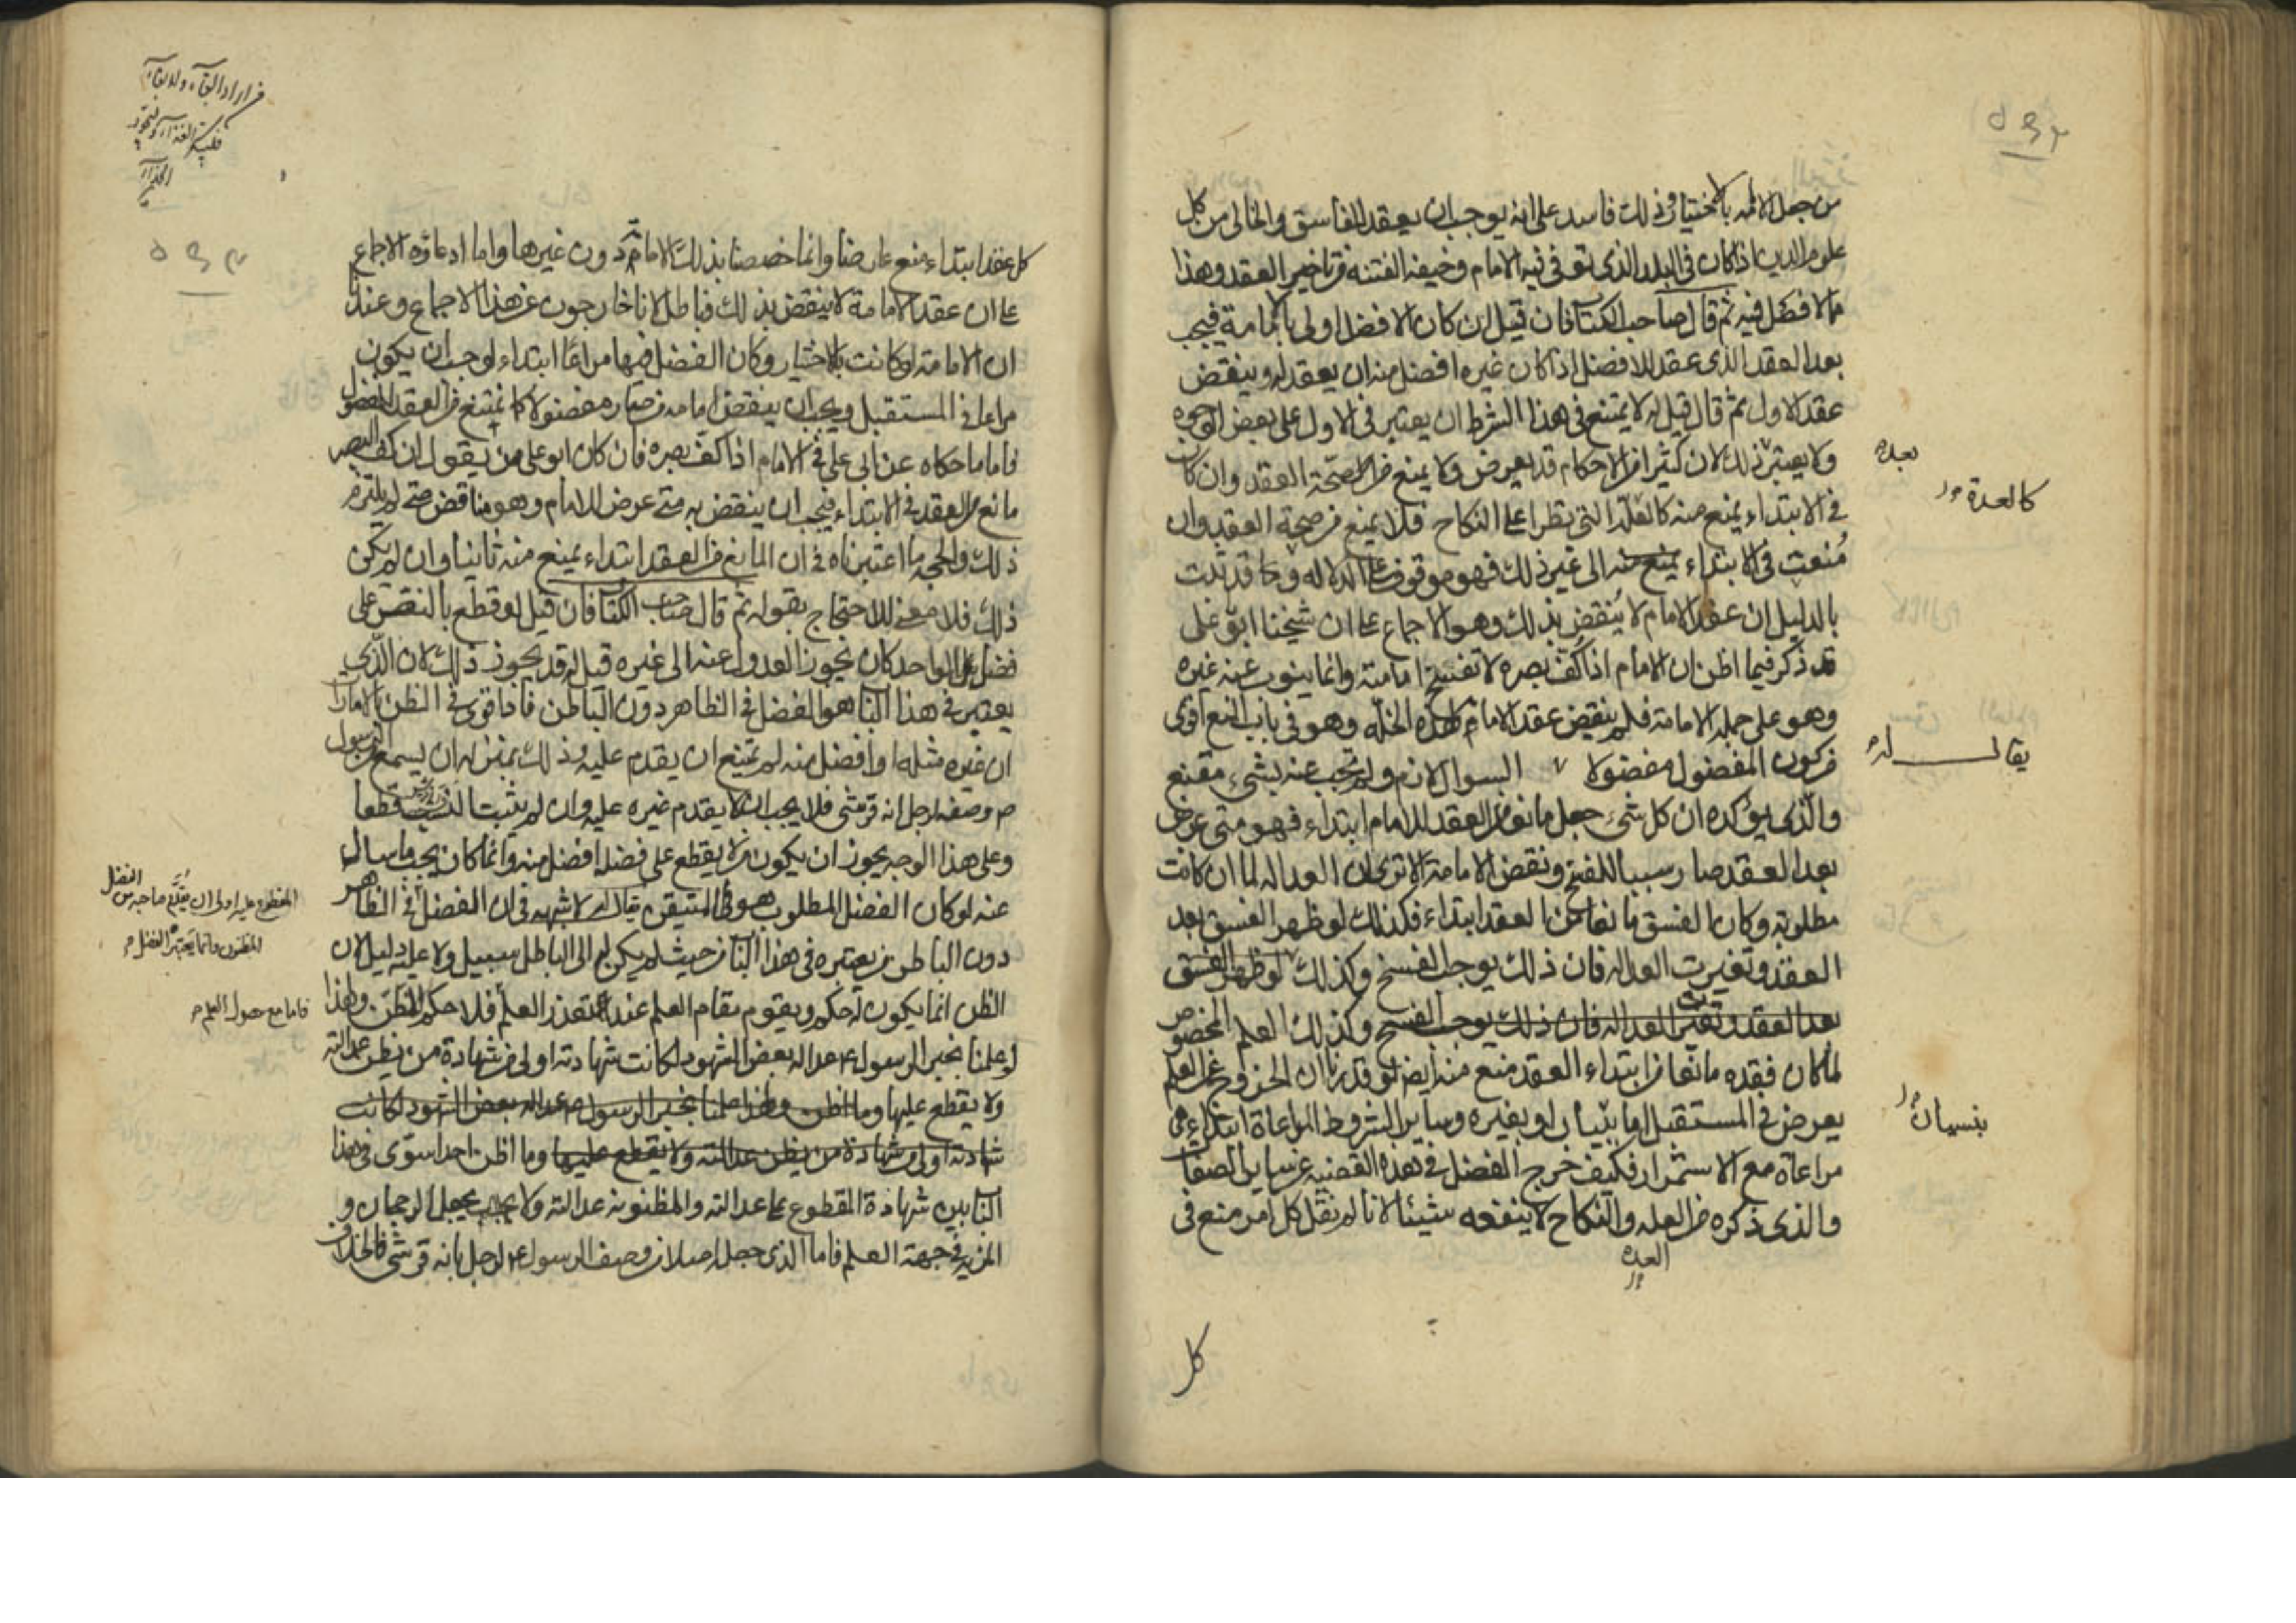 من جعل الائمه بالاختيار وذلك فاسد على انه يوجب ان يعقد للفاسق والخالى من كل
علوم الدين اذا كان فى البلد الذى توفى فيه الامام وخيف الفتنه من تاخير العقد وهذا
مما لا فضل فيه ثم قال صاحب الكتاب فان قيل ان كان الافضل اولى بالامامة فيجب
بعد العقد الذى عقد للافضل اذا كان غيره افضل منه ان يعقد له وينقض
عقد الاول ثم قال قيل له لا يمتنع فى هذا الشرط ان يعتبر فى الاول على بعض الوجوه
ولا يعتبر ذلك لان كثيرا من الاحكام قد يعرض ولا يمنع من صحة العقد وان كان
بعده
فى الابتداء يمنع منه كالعلة التى تطرا على النكاح فلا يمنع من صحة العقد وان
كالعدة
مُنعت فى الابتداء يمنع منه الى غير ذلك فهو موقوف على الدلاله وما قد ثبت
بالدليل ان عقد الامام لا ينقض بذلك وهو الاجماع على ان شيخنا ابو على
قد ذكر فيما اظن ان الامام اذا كُف بصره لا تفسخ امامته وانما ينوب عنه غيره
وهو على جملة الامامة فلم ينقض عقد الامام لهذه الخلّه وهو فى باب المنع اقوى
من كون المفضول مفضولا السوال لازم ولم تجب عنه بشىء مقنع
يقال له
والذى يؤكده ان كل شىء جعل مانعا من العقد للامام ابتداء فهو متى عرض
بعد العقد صار سببا للفسخ ونقض الامامة الا ترى ان العداله لما ان كانت
مطلوبة وكان الفسق مانعا من العقد ابتداء فكذلك لو ظهر الفسق بعد
العقد وتغيرت العداله فان ذلك يوجب الفسخ وكذلك لو ظهر الفسق
بعد العقد وتغيرت العداله فان ذلك يوجب الفسخ وكذلك العلم المخصوص
لما كان فقده مانعا من ابتداء العقد منع منه ايضا لو قدرنا ان الخروج عن العلم
يعرض فى المستقبل اما بنسيان او بغيره وساير الشروط المراعاة ابتداء هى
بنسيان
مراعاة مع الاستمرار فكيف خرج الفضل فى هذه القضيه عن ساير الصفات
والذى ذكره من العله والنكاح لا ينفعه شيئا لانا لم نقل كل امر منع فى
العده
كل
كل عقد ابتداء منع عارضا وانما خصصنا بذلك الامامة دون غيرها واما ادعاؤه الاجماع
على ان عقد الامامة لا ينقض بذلك فباطل لانا خارجون عن هذا الاجماع وعندنا
ان الامامة لو كانت بالاختيار وكان الفضل فيها مراعا ابتداء لوجب ان يكون
مراعا فى المستقبل ويجب ان ينقض امامه من صار مفضولا كما يمتنع من العقد للمفضول
فاما ما حكاه عن ابى على فى الامام اذا كف بصره فان كان ابو على من يقول ان كف البصر
مانع من العقد فى الابتداء فيجب ان ينقض به متى عرض للامام وهو مناقض متى لم يلتزم
ذلك والحجه ما اعتبرناه فى ان المانع من العقد ابتداء يمنع منه ثانيا وان لم يكن
ذلك فلا معنى للاحتجاج بقوله ثم قال صاحب الكتاب فان قيل لو قطع بالنقص على
فضل الواحد كان يجوز العدول عنه الى غيره قيل له قد يجوز ذلك لان الذى
يعتبر فى هذا الباب هو الفضل فى الظاهر دون الباطن فاذا قوى فى الظن بالامارات
ان غيره مثله او افضل منه لم يمتنع ان يقدم عليه وذلك بمنزله ان يسمع من الرسول
ص وصفه لرجل انه قرشى فلا يجب ان لا يقدم غيره عليه وان لم يثبت انه قرشى قطعا
وعلى هذا الوجه يجوز ان يكون من لا يقطع على فضله افضل منه وانما كان يجب ما سال
عنه لو كان الفضل المطلوب هو المتيقن يقال له لا شبهه فى ان الفضل فى الظاهر
دون الباطن من يعتبره فى هذا الباب من حيث لم يكن له الى الباطل سبيل ولا عليه دليل لان
الظن انما يكون له حكم ويقوم مقام العلم عند التعذر العلم فلا حكم للظن ولهذا
فاما مع حصول العلم
لو علمنا بخبر الرسول ع عداله بعض الشهود لكانت شهادته اولى من شهادة من يظن عدالته
ولا يقطع عليها وما اظن ولهذا علمنا بخبر الرسول ص عداله بعض الشهود لكانت
شهادته اولى من شهادة من يظن عدالته ولا يقطع عليها وما اظن احدا سوى فى هذا
الباب بين شهادة المقطوع على عدالته والمظنونه عدالته ولا يجب يجعل الرجحان و
المزيه فى جهة العلم فاما الذى جعله اصلا من وصف الرسول ع لرجل بانه قرشى فالخلاف